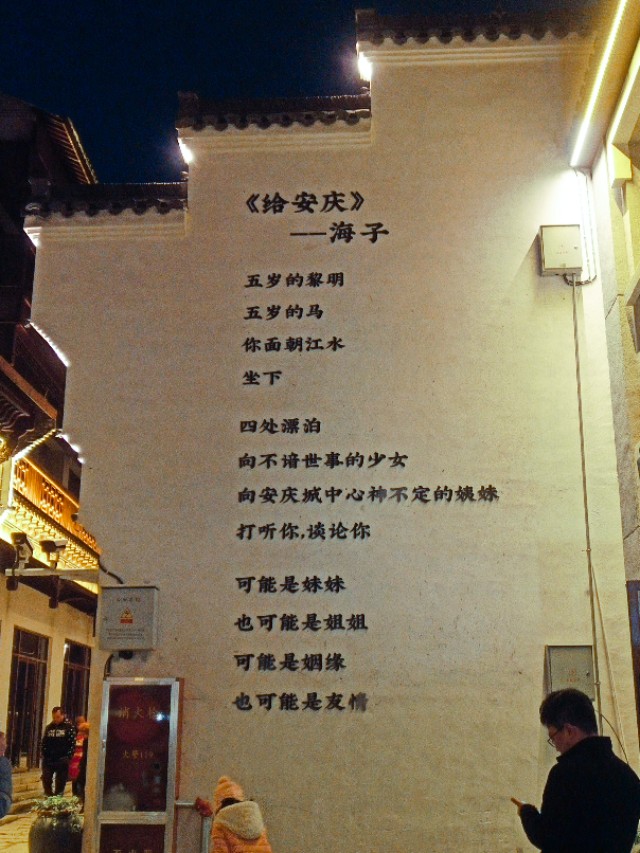 《给安庆》
——海子
五岁的黎明
五岁的马
你面朝江水
坐下
四处漂泊
向不谙世事的少女
向安庆城中心神不定的姨妹
打听你,谈论你
可能是妹妹
也可能是姐姐
可能是姻缘
也可能是友情
消火栓
火警119